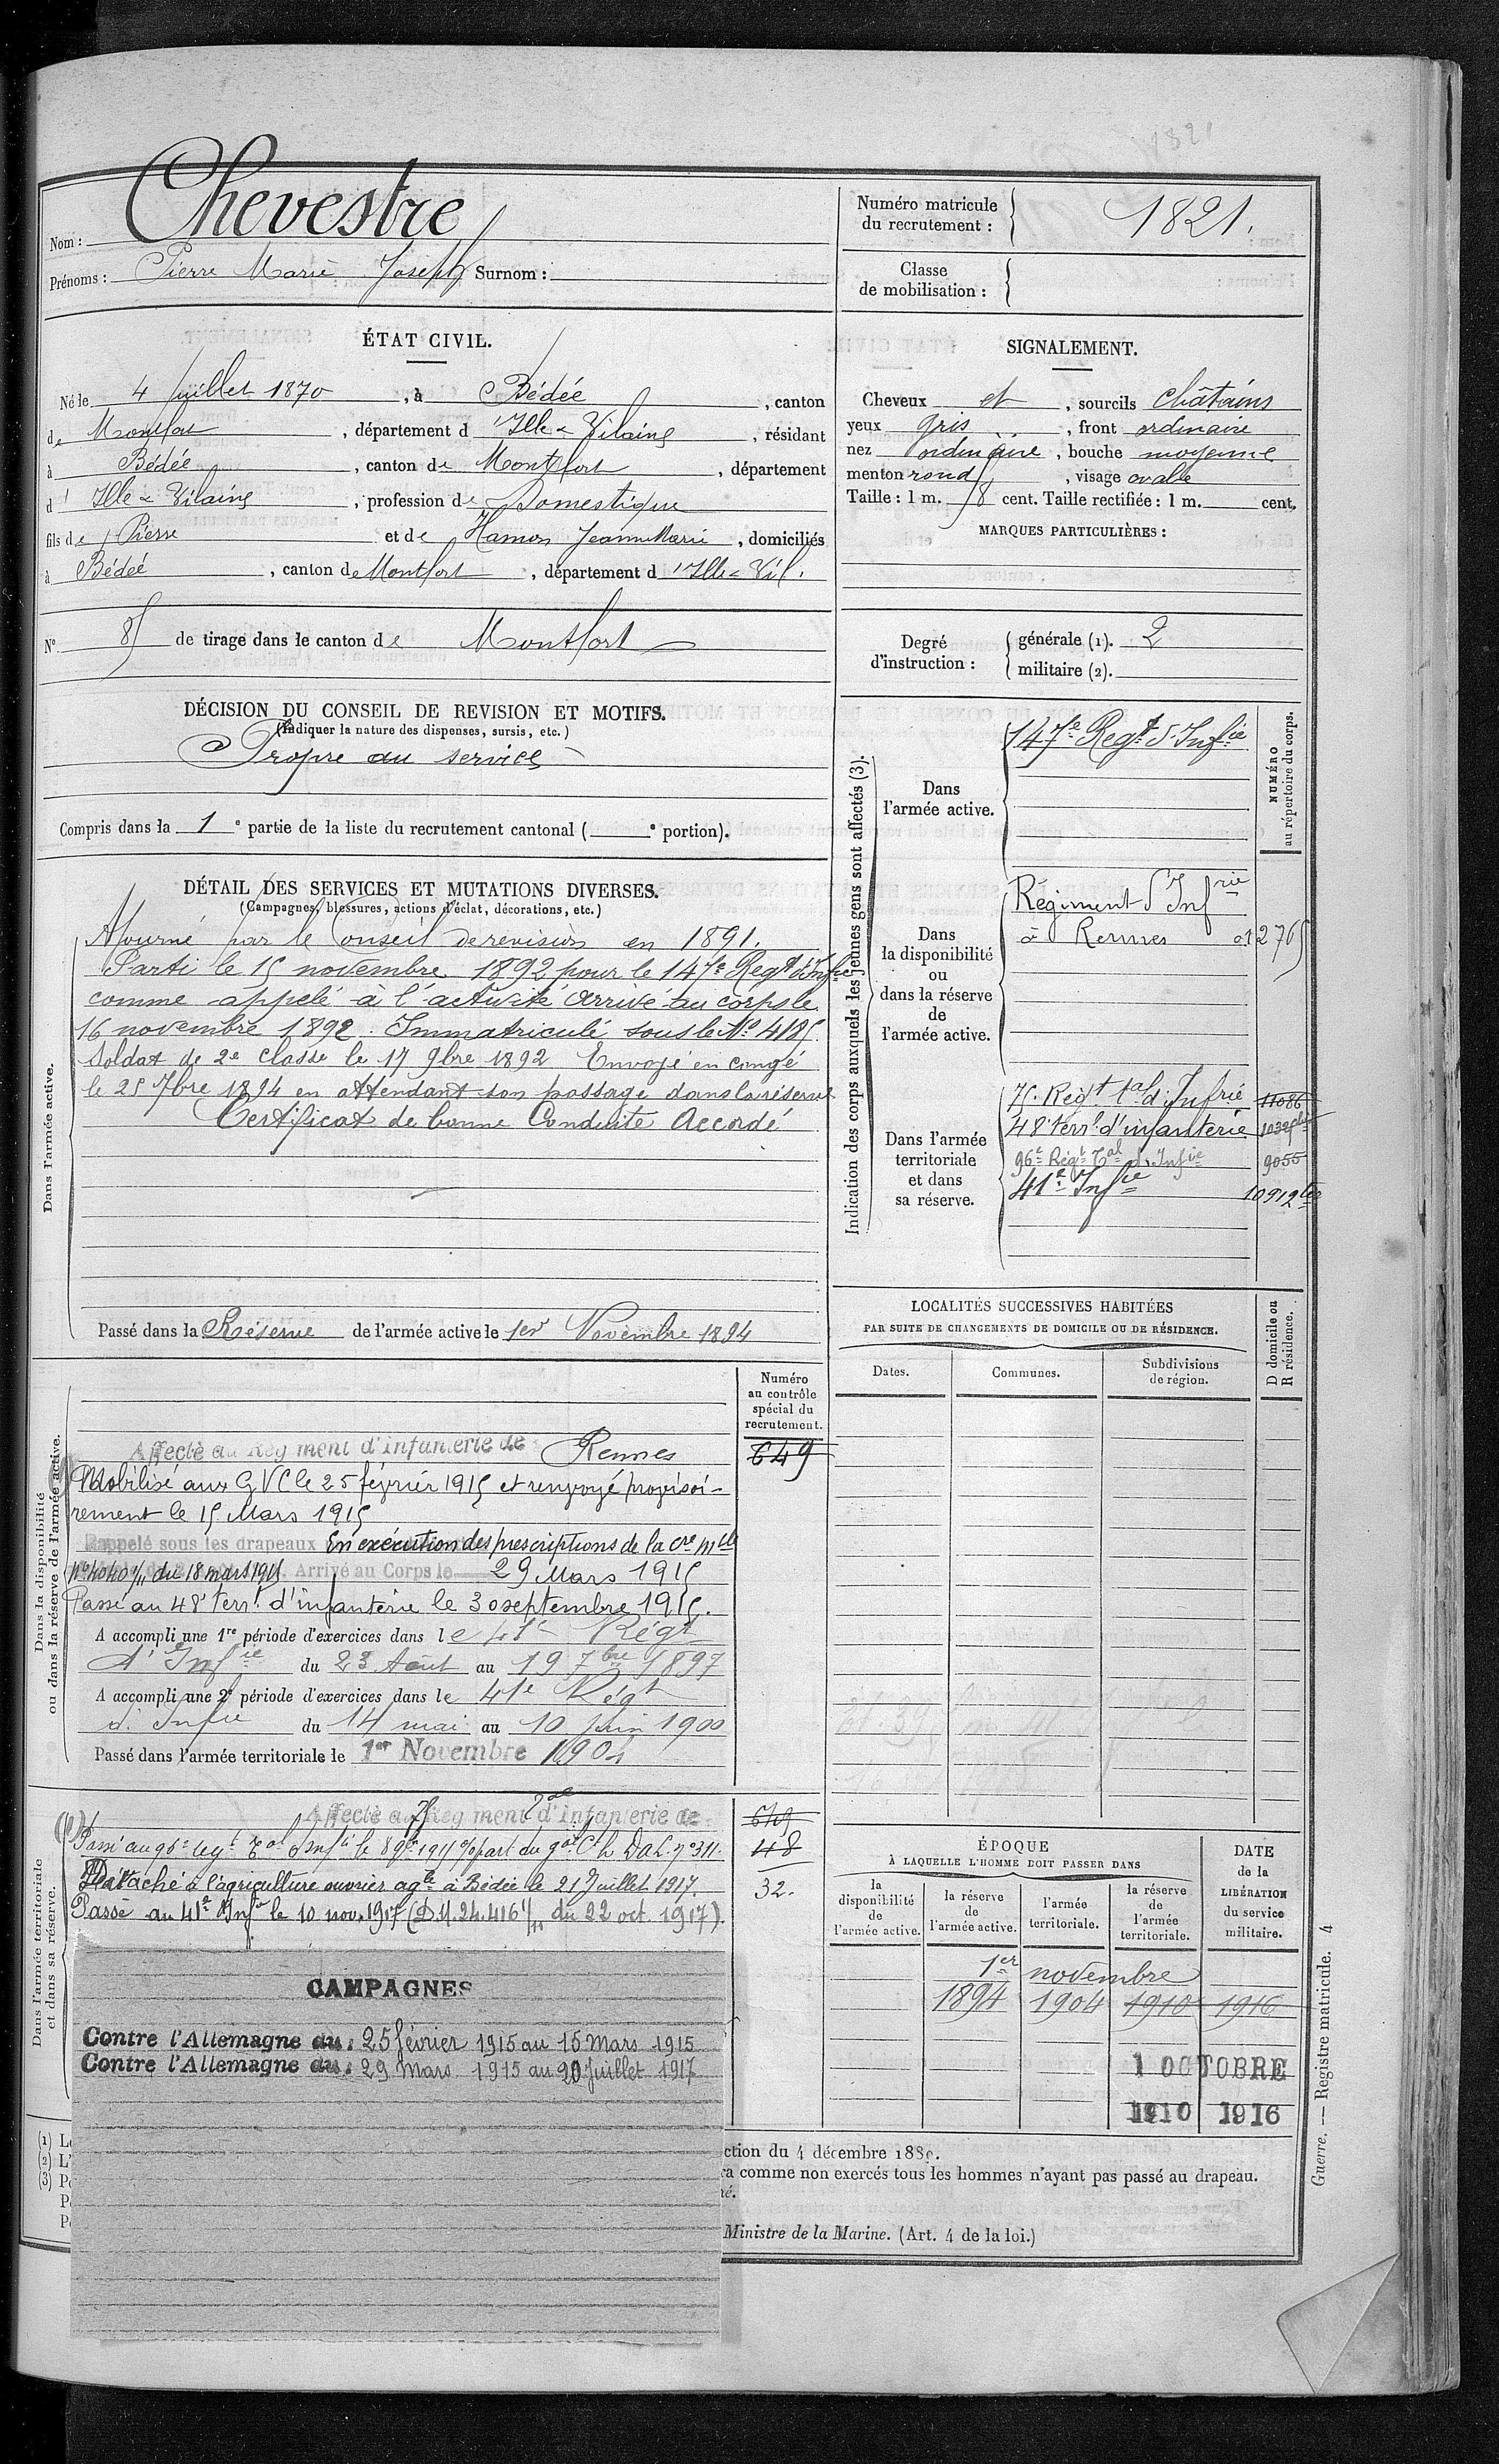 1821
Nom : Chevestre
Prénoms : Pierre Marie Joseph Surnom :
Numéro matricule
du recrutement : 1821.
Classe
de mobilisation :
ÉTAT CIVIL.
Né le 4 juillet 1870, à Bédée, canton
de Montfort, département d'Ille & Vilaine, résidant
à Bédée, canton de Montfort, département
d'Ille & Vilaine, profession de Domestique
fils de Pierre et de Hamon Jeanne Marie, domiciliés
à Bédée, canton de Montfort, département d'Ille & Vil.
N° 85 de tirage dans le canton de Montfort
DÉCISION DU CONSEIL DE REVISION ET MOTIFS.
(Indiquer la nature des dispenses, sursis, etc.)
Propre au service
Compris dans la 1e partie de la liste du recrutement cantonal ( e portion).
SIGNALEMENT.
Cheveux et, sourcils châtains
yeux gris, front ordinaire
nez ordinaire, bouche moyenne
menton rond, visage ovale
Taille : 1 m. cent. Taille rectifiée : 1 m. cent.
MARQUES PARTICULIÈRES :
Degré
d'instruction :
générale (1). 2
militaire (2).
DÉTAIL DES SERVICES ET MUTATIONS DIVERSES.
(Campagnes, blessures, actions d'éclat, décorations, etc.)
Dans l'armée active.
Ajourné par le Conseil de revision en 1891.
Parti le 15 novembre 1892 pour le 147e Regt d'Infie
comme appelé à l'activité arrivé au corps le
16 novembre 1892. Immatriculé sous le No 4185.
Soldat de 2e classe le 17 9bre 1892 Envoyé en congé
le 25 7bre 1894 en attendant son passage dans la réserve
Certificat de bonne Conduite Accordé
Passé dans la Réserve de l'armée active le 1er Novembre 1894
Indication des corps auxquels les jeunes gens sont affectés (3).
NUMÉRO
au répertoire du corps.
Dans
l'armée active.
147e Regt d'Infie
Dans
la disponibilité
ou
dans la réserve
de
l'armée active.
Régiment d'Infrie
à Rennes 012765
Dans l'armée
territoriale
et dans
sa réserve.
75. Regt tal d'Infrie 11086
48e terrl d'infanterie
96e Régt Tal d'Infie 9055
41e Infie 10912 ter
LOCALITÉS SUCCESSIVES HABITÉES
PAR SUITE DE CHANGEMENTS DE DOMICILE OU DE RÉSIDENCE.
Dates.
Communes.
Subdivisions
de région.
D domicile ou
R résidence.
Dans la disponibilité
ou dans la réserve de l'armée active.
Numéro
au contrôle
spécial du
recrutement.
649
Affecté au Régiment d'infanterie de Rennes
Mobilisé aux G V C le 25 février 1915 et renvoyé provisoi-
rement le 15 Mars 1915
Rappelé sous les drapeaux En exécution des prescriptions de la cre mlle
No 4040 1/11 du 18 mars 1915 Arrivé au Corps le 29 Mars 1915
Passé au 48e terrl d'infanterie le 30 septembre 1915.
A accompli une 1re période d'exercices dans le 41e Régt
d'Infie du 23 Août au 19 7bre 1897
A accompli une 2e période d'exercices dans le 41e Régt
d'Infie du 14 mai au 10 juin 1900
Passé dans l'armée territoriale le 1er Novembre 1904
Dans l'armée territoriale
et dans sa réserve.
Affecté au 75 Régiment Tal d'Infanterie de
649
48
32.
Passé au 96e regt Tal d'Infie le 8 9bre 1915
Détaché à l'agriculture ouvrier agle à Bédée le 21 Juillet 1917.
Passé au 41e d'Infie le 10 nov. 1917 (D.M. 24.416 1/11 du 22 oct. 1917).
CAMPAGNES
Contre l'Allemagne du : 25 février 1915 au 15 Mars 1915
Contre l'Allemagne du : 29 Mars 1915 au 20 Juillet 1917
ÉPOQUE
À LAQUELLE L'HOMME DOIT PASSER DANS
la
disponibilité
de
l'armée active.
la réserve
de
l'armée active.
l'armée
territoriale.
la réserve
de
l'armée
territoriale.
DATE
de la
LIBÉRATION
du service
militaire.
1er novembre
1894 1904 1910 1916
1 OCTOBRE
1910 1916
(1) L
(2) L'
(3) P
ction du 4 décembre 1889.
ra comme non exercés tous les hommes n'ayant pas passé au drapeau.
né.
Ministre de la Marine. (Art. 4 de la loi.)
Guerre. — Registre matricule. 4